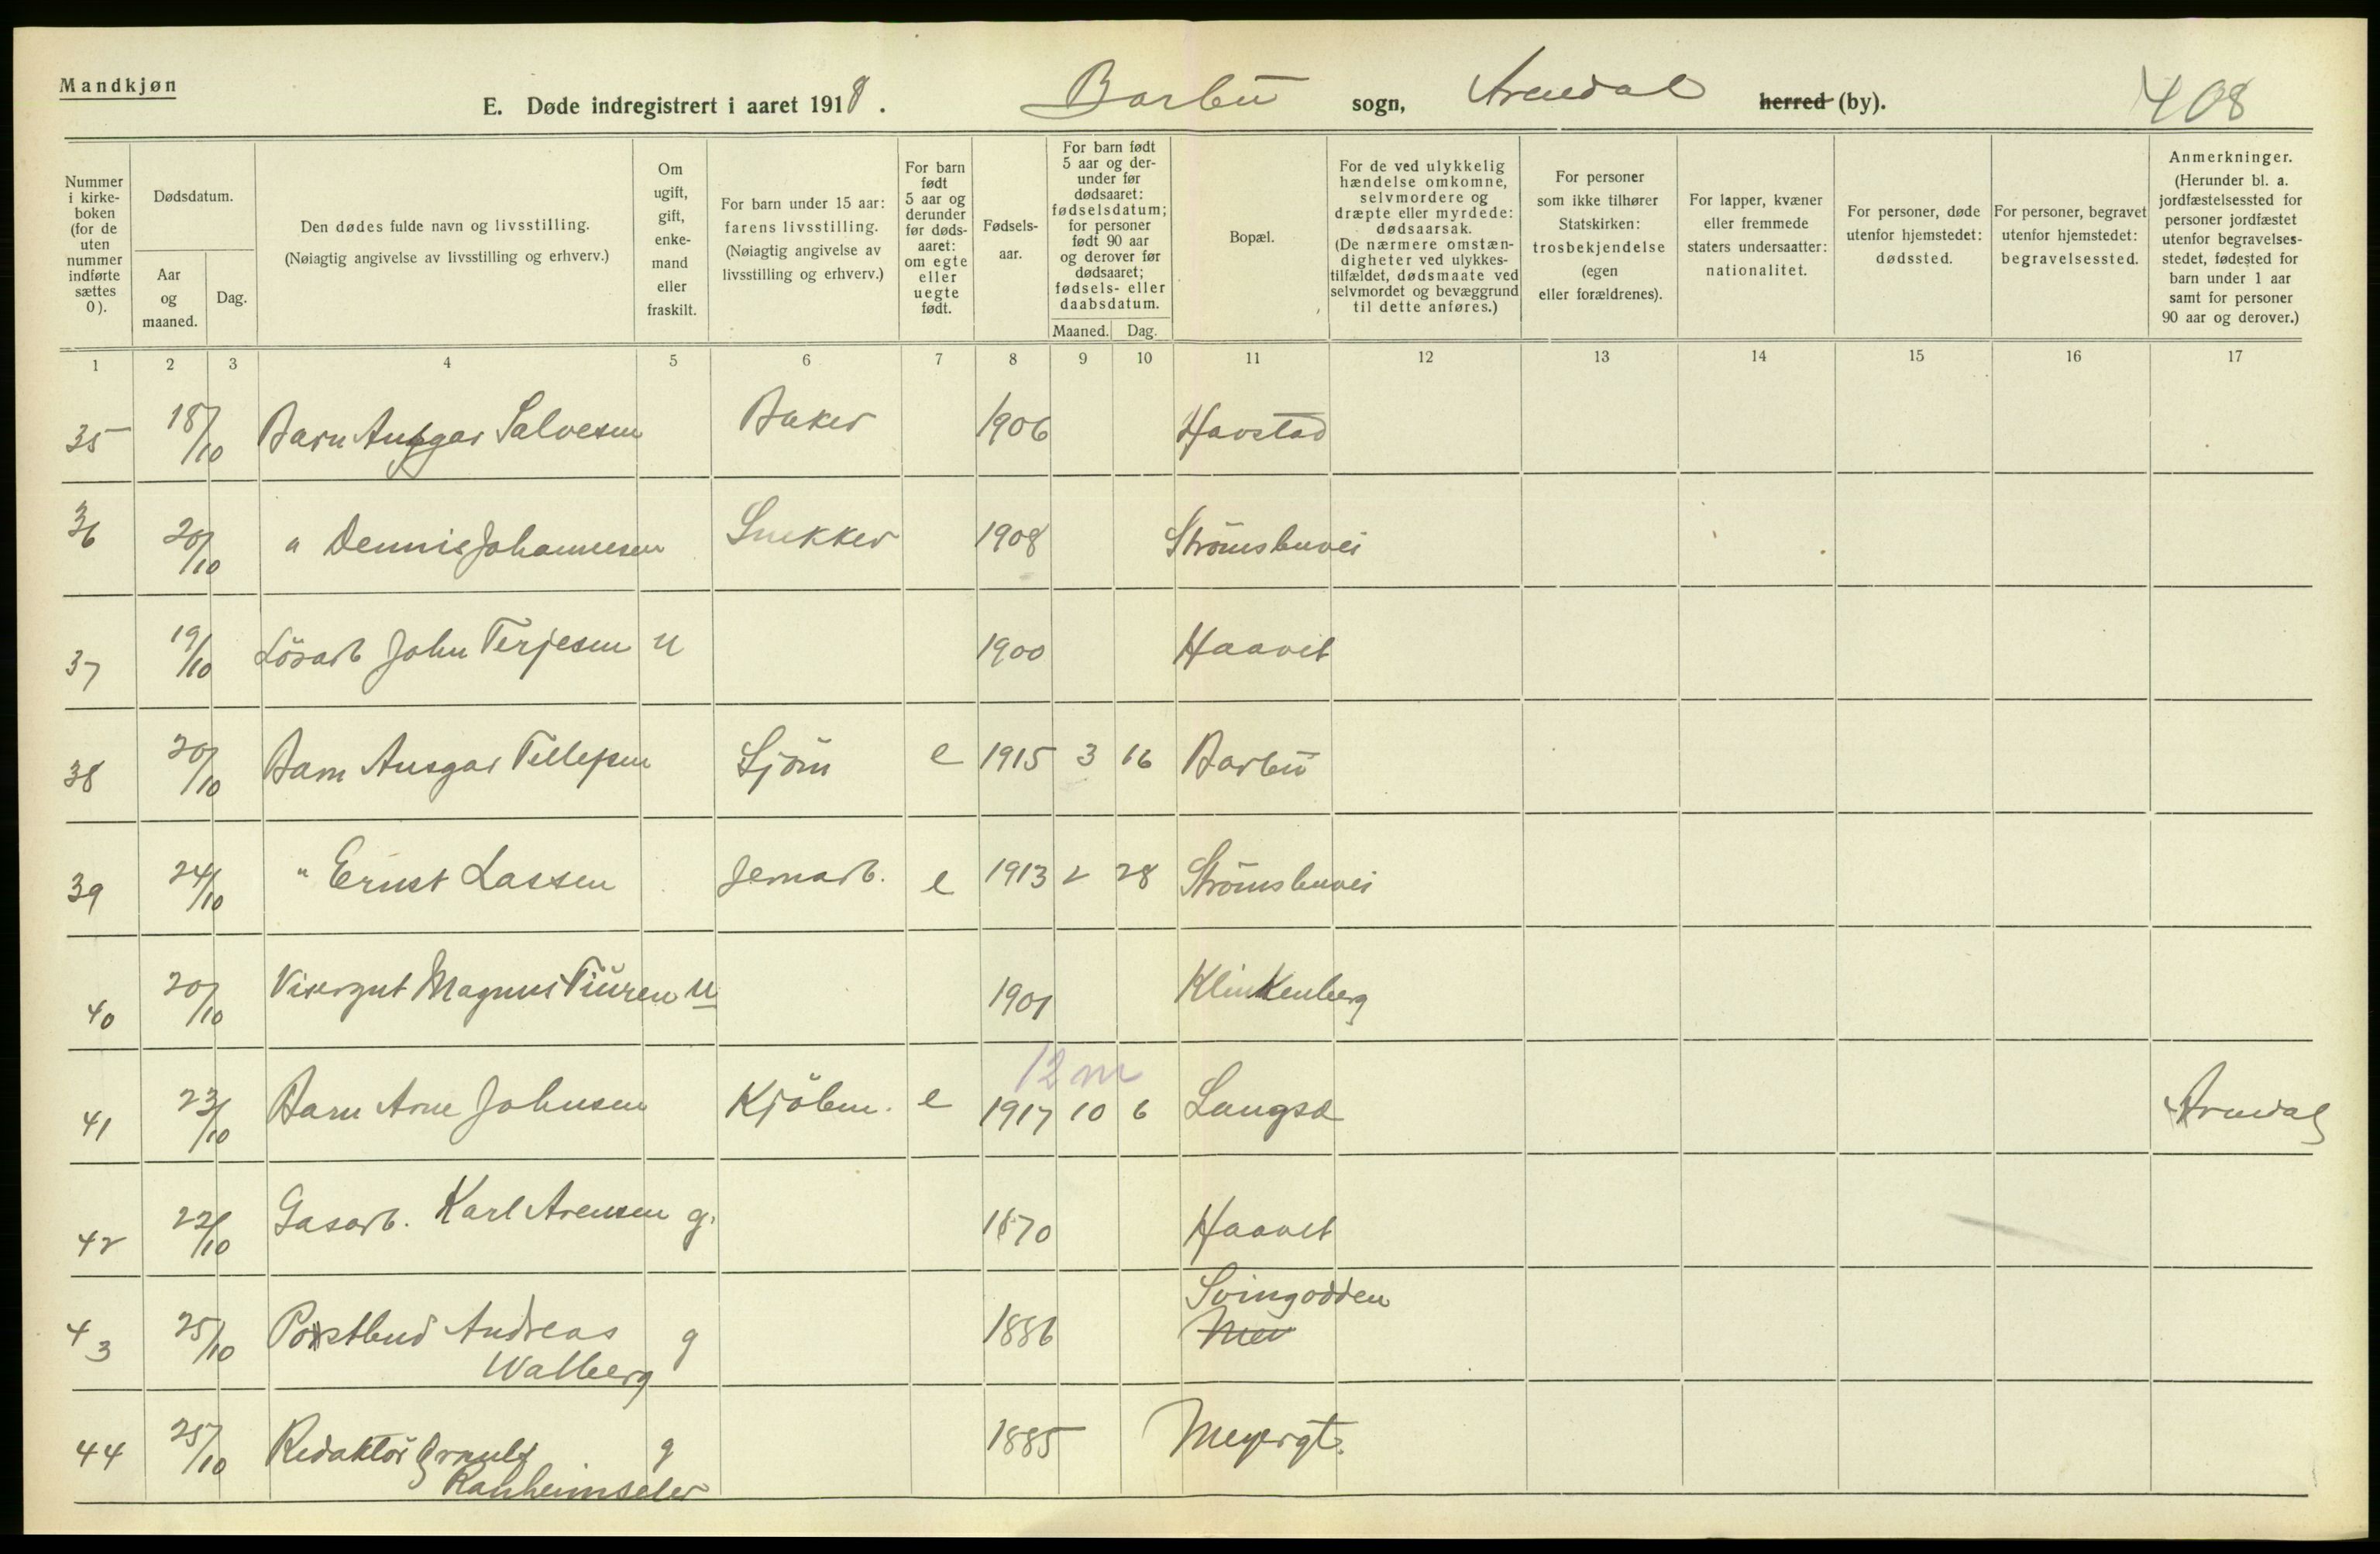 Mandkjøn
E. Døde indregistrert i aaret 1918. Barbu sogn, Arendal herred (by). 408
Nummer i kirkeboken (for de uten nummer indførte sættes 0).
Dødsdatum.
Aar og maaned.
Dag.
Den dødes fulde navn og livsstilling.
(Nøiagtig angivelse av livsstilling og erhverv.)
Om ugift, gift, enkemand eller fraskilt.
For barn under 15 aar: farens livsstilling. (Nøiagtig angivelse av livsstilling og erhverv.)
For barn født 5 aar og derunder før dødsaaret: om egte eller uegte født.
Fødselsaar.
For barn født 5 aar og derunder før dødsaaret: fødselsdatum; for personer født 90 aar og derover før dødsaaret; fødsels- eller daabsdatum.
Maaned. Dag.
Bopæl.
For de ved ulykkelig hændelse omkomne, selvmordere og dræpte eller myrdede: dødsaarsak. (De nærmere omstændigheter ved ulykkestilfældet, dødsmaate ved selvmordet og bevæggrund til dette anføres.)
For personer som ikke tilhører Statskirken: trosbekjendelse (egen eller forældrenes).
For lapper, kvæner eller fremmede staters undersaatter: nationalitet.
For personer, døde utenfor hjemstedet: dødssted.
For personer, begravet utenfor hjemstedet: begravelsessted.
Anmerkninger. (Herunder bl. a. jordfæstelsessted for personer jordfæstet utenfor begravelsesstedet, fødested for barn under 1 aar samt for personer 90 aar og derover.)
1 2 3 4 5 6 7 8 9 10 11 12 13 14 15 16 17
35 18/10 Barn Ansgar Salvesen Baker 1906 Havstad
36 20/10 " Dennis Johannesen Snekker 1908 Strömsbuvei
37 19/10 Lösarb John Terjesen u 1900 Haavet
38 20/10 Barn Ansgar Tellefsen Sjöm e 1915 3 16 Barbu
39 24/10 " Ernst Lassen Jernarb. e 1913 2 28 Strömsbuvei
40 20/10 Visergut Magnus u 1901 Klinkenberg
12 m
41 23/10 Barn Arne Johnsen Kjöbm. e 1917 10 6 Langsæ Arendal
42 22/10 Gasarb. Karl Arensen g. 1870 Haavet
Svingodden
43 25/10 Postbud Andreas g 1886
Walberg
44 25/10 Redaktör Ørnulf g 1885 Meyergt.
Ranheimsæter